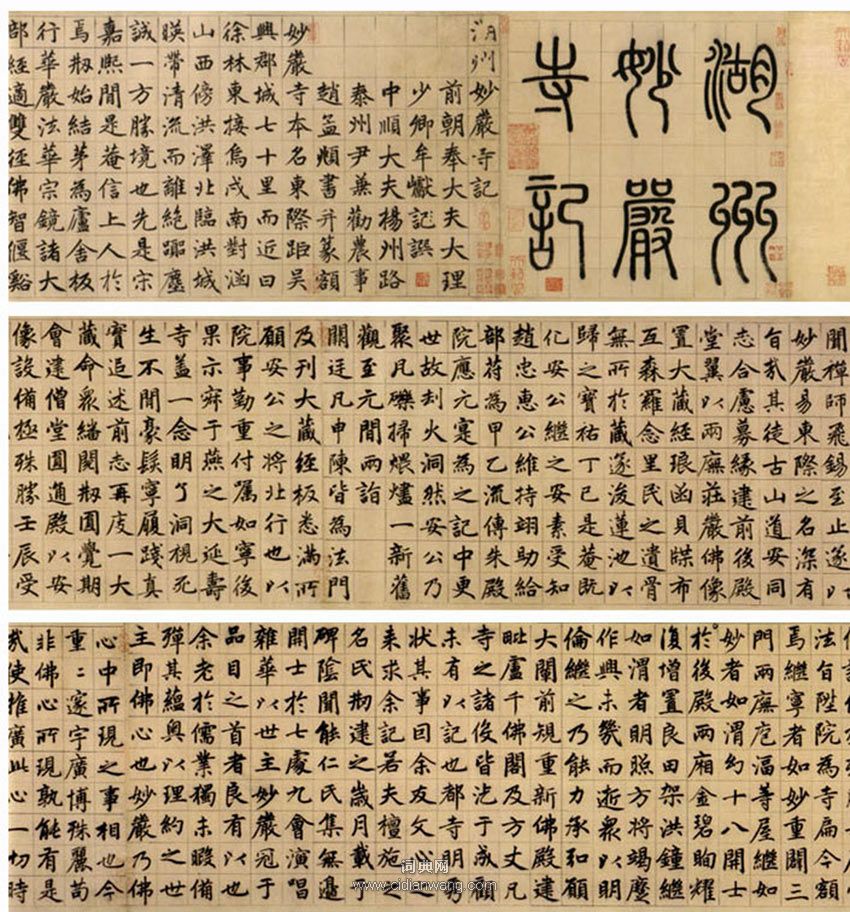 湖州
妙嚴
寺記
湖州妙嚴寺記
前朝奉大夫大理
少卿牟巘記譔
中順大夫楊州路
泰州尹兼勸農事
趙孟頫書并篆額
妙嚴寺本名東際距吳
興郡城七十里而近曰
徐林東接烏戍南對涵
山西傍洪澤北臨洪城
暎帶清流而離絕囂塵
誠一方勝境也先是宋
嘉熙間是菴信上人於
焉剏始結茅為廬舍板
行華嚴法華宗鏡諸大
部經適雙徑佛智偃谿
聞禪師飛錫至止遂以
妙嚴易東際之名深有
旨哉其徒古山道安同
志合慮募緣建前後殿
堂翼以兩廡莊嚴佛像
置大藏經琅函貝牒布
互森羅念里民之遺骨
無所於藏遂浚蓮池以
歸之寶祐丁巳是菴既
化安公繼之安素受知
趙忠惠公維持翊助給
部苻為甲乙流傳朱殿
院應元寔為之記中更
世故刦火洞然安公乃
聚凡礫掃煨燼一新舊
觀至元間兩詣
闕廷凡申陳皆為法門
及刊大藏經板悉滿所
願安公之將北行也以
院事勤重付囑如寧後
果示寂于燕之大延壽
寺蓋一念明了洞視死
生不間豪髮寧履踐真
實追述前志再庋一大
藏命眾繙閱剏圓覺期
會建僧堂圓通殿以安
像設備極殊勝壬辰受
法旨陞院為寺扁今額
焉繼寧者如妙重闢三
門兩廡庖湢等屋繼如
妙者如渭約十八開士
於後殿兩廂金碧眴耀
復增置良田架洪鐘繼
如渭者明照方將竭麼
作興未幾而逝眾以明
倫繼之乃能力承和願
大闡前規重新佛殿建
毗盧千佛閣及方丈凡
寺之諸役皆汔于成顧
未有以記也都寺明秀
狀其事囙余友文心之
來求余記若夫檀施之
名氏剏建之歲月載于
碑陰聞能仁氏集無邊
開士於七處九會演唱
雜華以世主妙嚴冠于
品目之首者良有以也
余老於儒業獨未暇備
殫其蘊奧以理約之世
主即佛心也妙嚴乃佛
心中所現之事相也今
重〻邃宇廣博殊麗苟
非佛心所現孰能有是
哉使推廣此心一切時
词典网
www.cidianwang.com